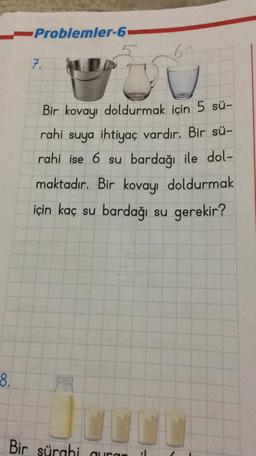 Problemler-6
5 6
7.
Bir kovayı doldurmak için 5 sü-
rahi suya ihtiyaç vardır. Bir sü-
rahi ise 6 su bardağı ile dol-
maktadır. Bir kovayı doldurmak
için kaç su bardağı su gerekir?
8.
Bir sürahi